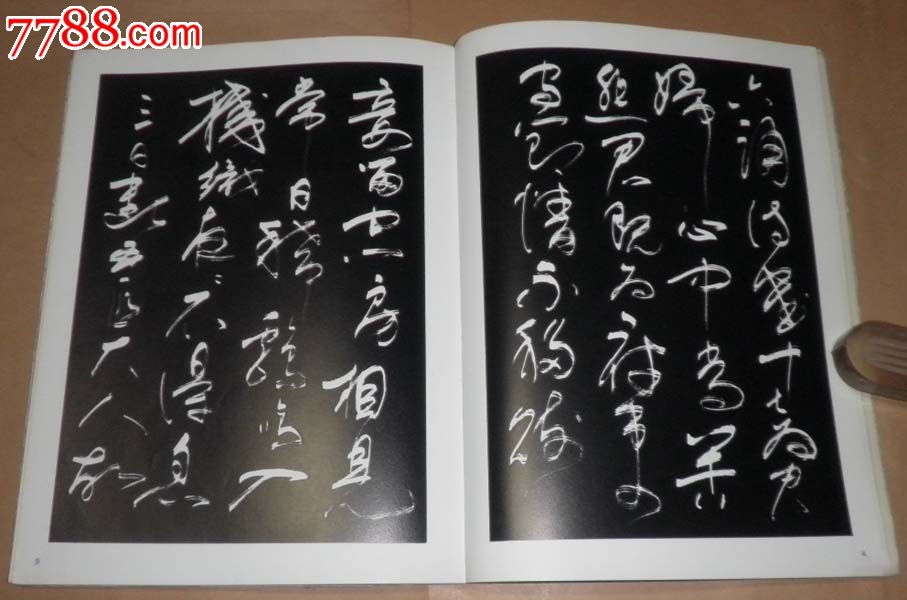 7788.com
六誦詩書十七為君
婦心中常苦
悲君既為府吏
守節情不移賤
妾留空房相見
常日稀鷄鳴入
機織夜々不得息
三日斷五疋大人故